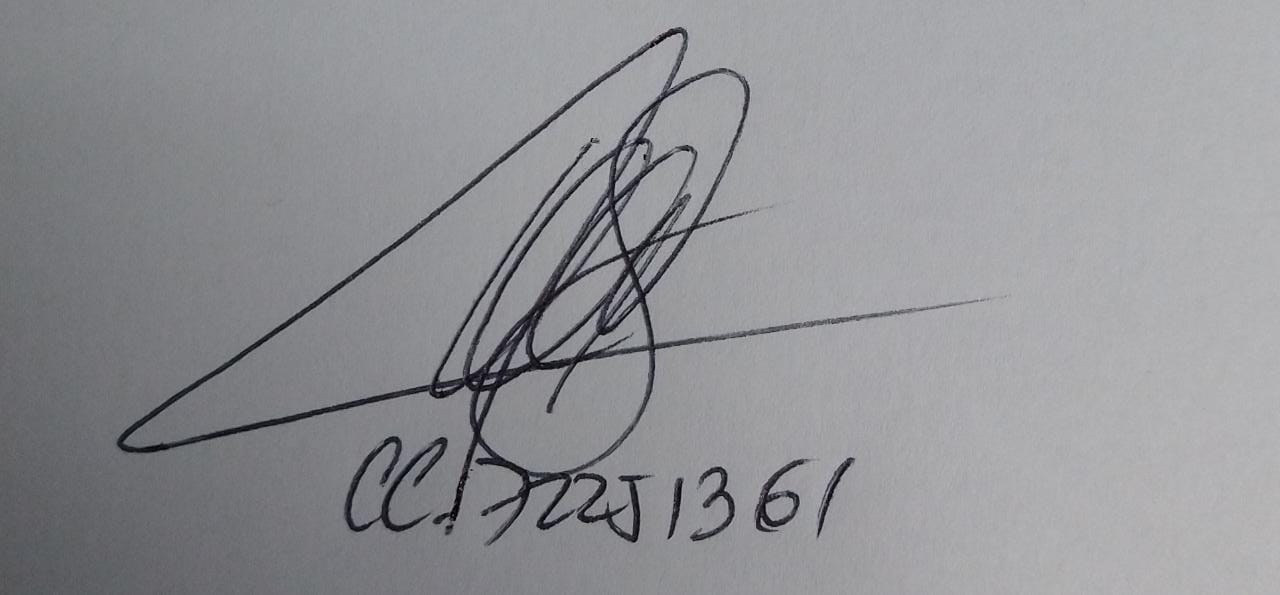 CC. 72251361